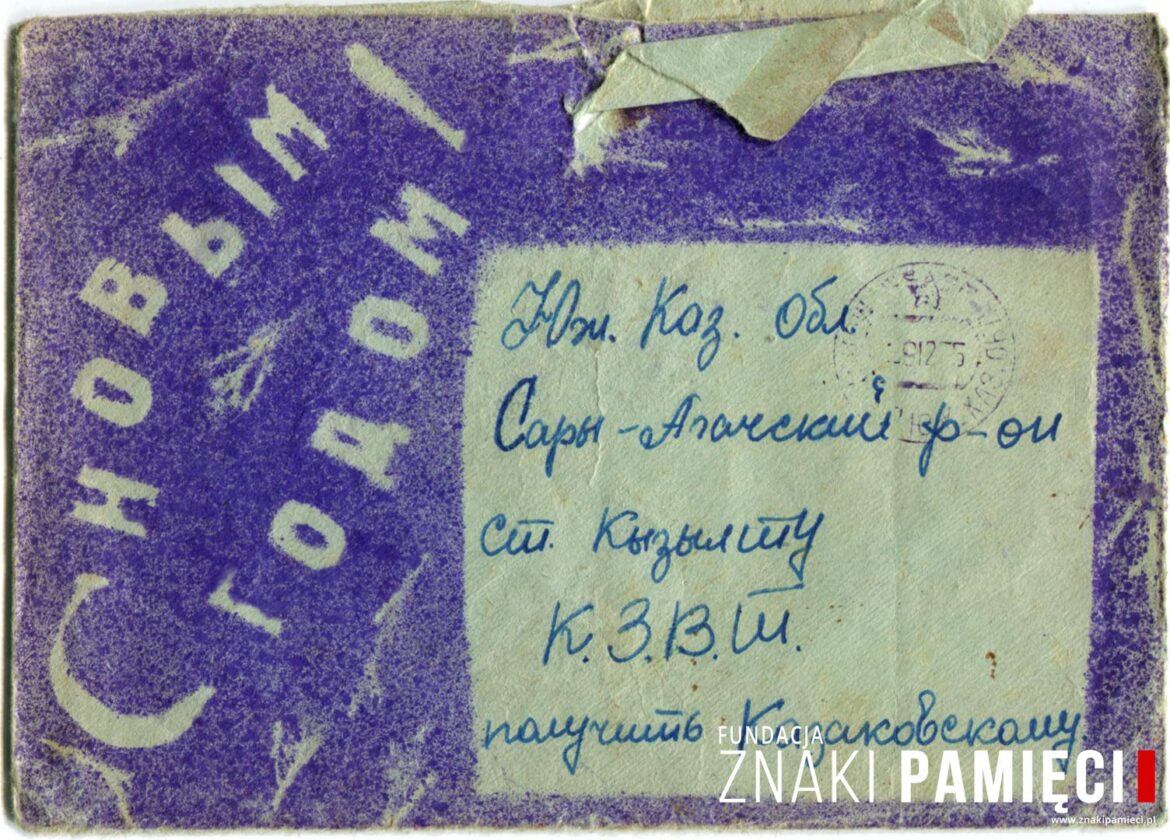 С НОВЫМ
ГОДОМ!
Юж. Каз. Обл.
Сары-Агачский р-он
ст. Кызылту
К.З.В.Ш.
получить Козаковскому.
FUNDACJA
ZNAKI PAMIĘCI
www.znakipamieci.pl